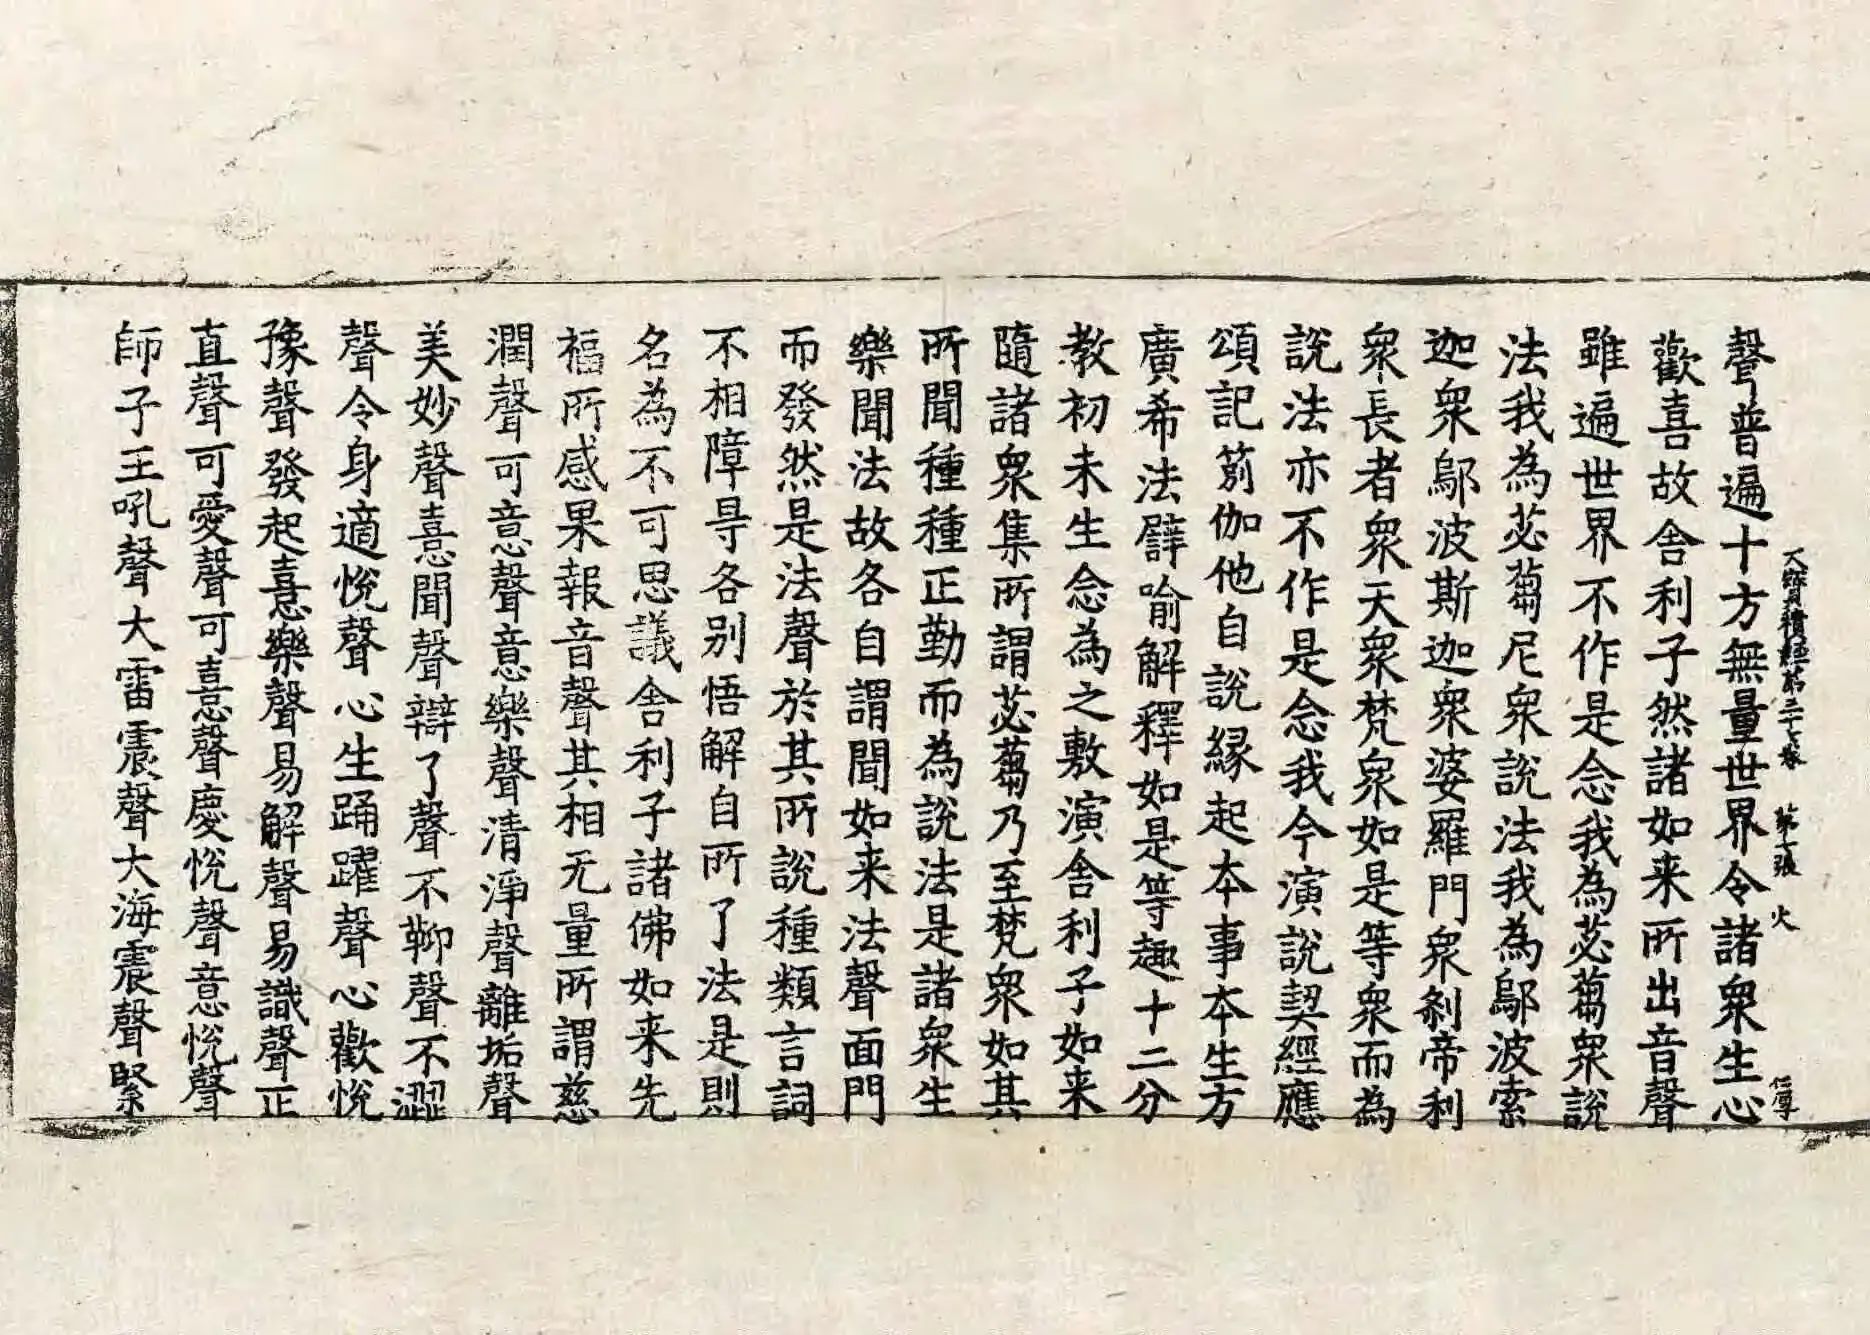 大寶積經第三十七卷 第七張 火
聲普遍十方無量世界令諸衆生心
歡喜故舍利子然諸如来所出音聲
雖遍世界不作是念我為苾蒭衆說
法我為苾蒭尼衆說法我為鄔波索
迦衆鄔波斯迦衆婆羅門衆剎帝利
衆長者衆天衆梵衆如是等衆而為
說法亦不作是念我今演說契經應
頌記莂伽他自說緣起本事本生方
廣希法譬喻解釋如是等趣十二分
教初未生念為之敷演舍利子如来
隨諸衆集所謂苾蒭乃至梵衆如其
所聞種種正勤而為說法是諸衆生
樂聞法故各自謂聞如来法聲面門
而發然是法聲於其所說種類言詞
不相障㝵各別悟解自所了法是則
名為不可思議舍利子諸佛如来先
福所感果報音聲其相无量所謂慈
潤聲可意聲意樂聲清淨聲離垢聲
美妙聲憙聞聲辯了聲不䩕聲不澀
聲令身適悅聲心生踊躍聲心歡悅
豫聲發起憙樂聲易解聲易識聲正
直聲可愛聲可憙聲慶悅聲意悅聲
師子王吼聲大雷震聲大海震聲緊